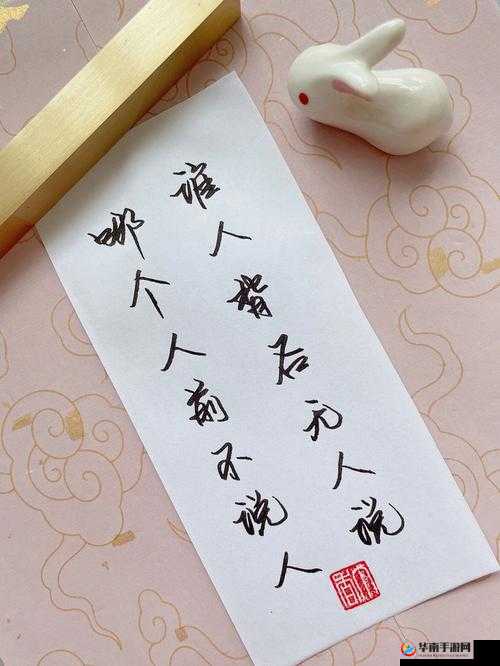 谁人背后无人说
哪个人前不说人
华南手游网